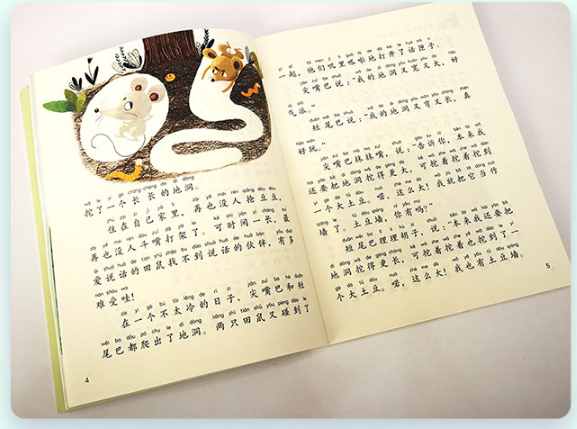 挖了一个长长的地洞。
住在自己家里，再也没人抢豆豆，
再也没人斗嘴打架了。可时间一长，最
爱说话的田鼠找不到说话的伙伴，有多
难受哇！
在一个不太冷的日子，尖嘴巴和短
尾巴都爬出了地洞。两只田鼠又碰到了
4
一起，他们叽里呱啦地打开了话匣子。
尖嘴巴说：“我的地洞又宽又大，好
气派。”
短尾巴说：“我的地洞又弯又长，真
好玩。”
尖嘴巴抹抹嘴，说：“告诉你，本来我
还要把地洞挖得更大。可挖着挖着挖到
一个大土豆。喏，这么大！我就把它当作
墙了。土豆墙，你有吗？”
短尾巴理理胡子，说：“本来我还要把
地洞挖得更长，可挖着挖着也挖到了一
个大土豆。喏，这么大！我也有土豆墙。
5